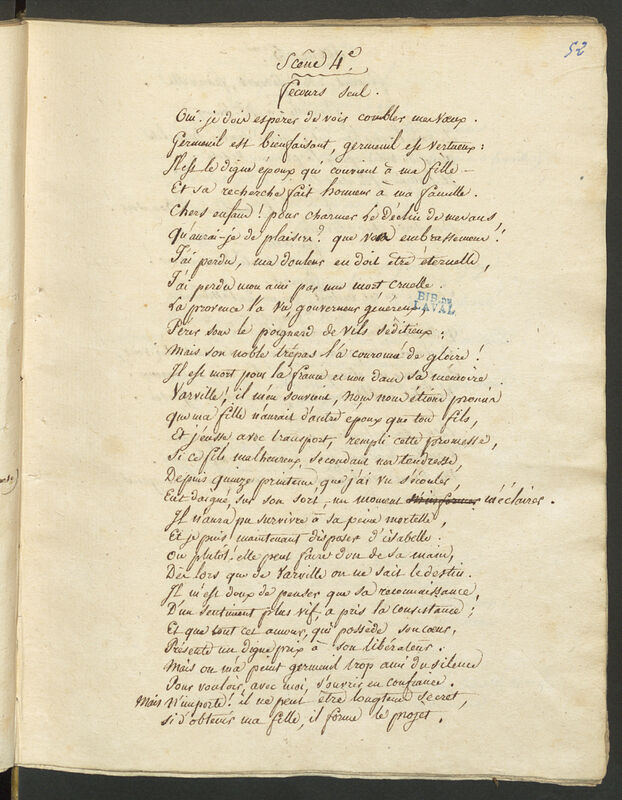 52
Scêne 4e.
Fecours seul.
Oui. je dois espérer de voir combler mes vœux.
Germeuil est bienfaisant, germeuil est vertueux :
Il est le digne époux qui convient à ma fille
Et sa recherche fait honneur à ma famille.
Chers enfans ! pour charmer le déclin de mes ans,
Qu'aurai-je de plaisirs ? que d'embrassemens !
J'ai perdu, ma douleur en doit être éternelle,
J'ai perdu mon ami par une mort cruelle.
La provence l'a vu gouverneur généreux
BIB. DE
LAVAL
Périr sous le poignard de vils séditieux :
Mais son noble trépas l'a couronné de gloire !
Il est mort pour la france et non dans sa mémoire.
Varville, il m'en souvient, nous nous étions promis
Que ma fille n'aurait d'autre époux que ton fils,
Et j'eusse avec transport, rempli cette promesse,
Si ce fils malheureux, secondant ma tendresse,
Depuis quinze printems que j'ai vu s'écouler,
Eut daigné, sur son sort, un moment m'éclairer.
Il n'aura pu survivre à sa peine mortelle,
Et je puis maintenant disposer d'isabelle.
Ou plutôt elle peut faire don de sa main,
Dès lors que de Varville on ne sait le destin.
Il m'est doux de penser que sa reconnaissance,
D'un sentiment plus vif, a pris la consistance ;
Et que tout cet amour, qui possède son cœur,
Présente un digne prix à son libérateur.
Mais on m'a peint germeuil trop ami du silence
Pour vouloir, avec moi, s'ouvrir en confiance.
Mais N'importe ! il ne peut être longtems secret,
Si d'obtenir ma fille, il forme le projet.